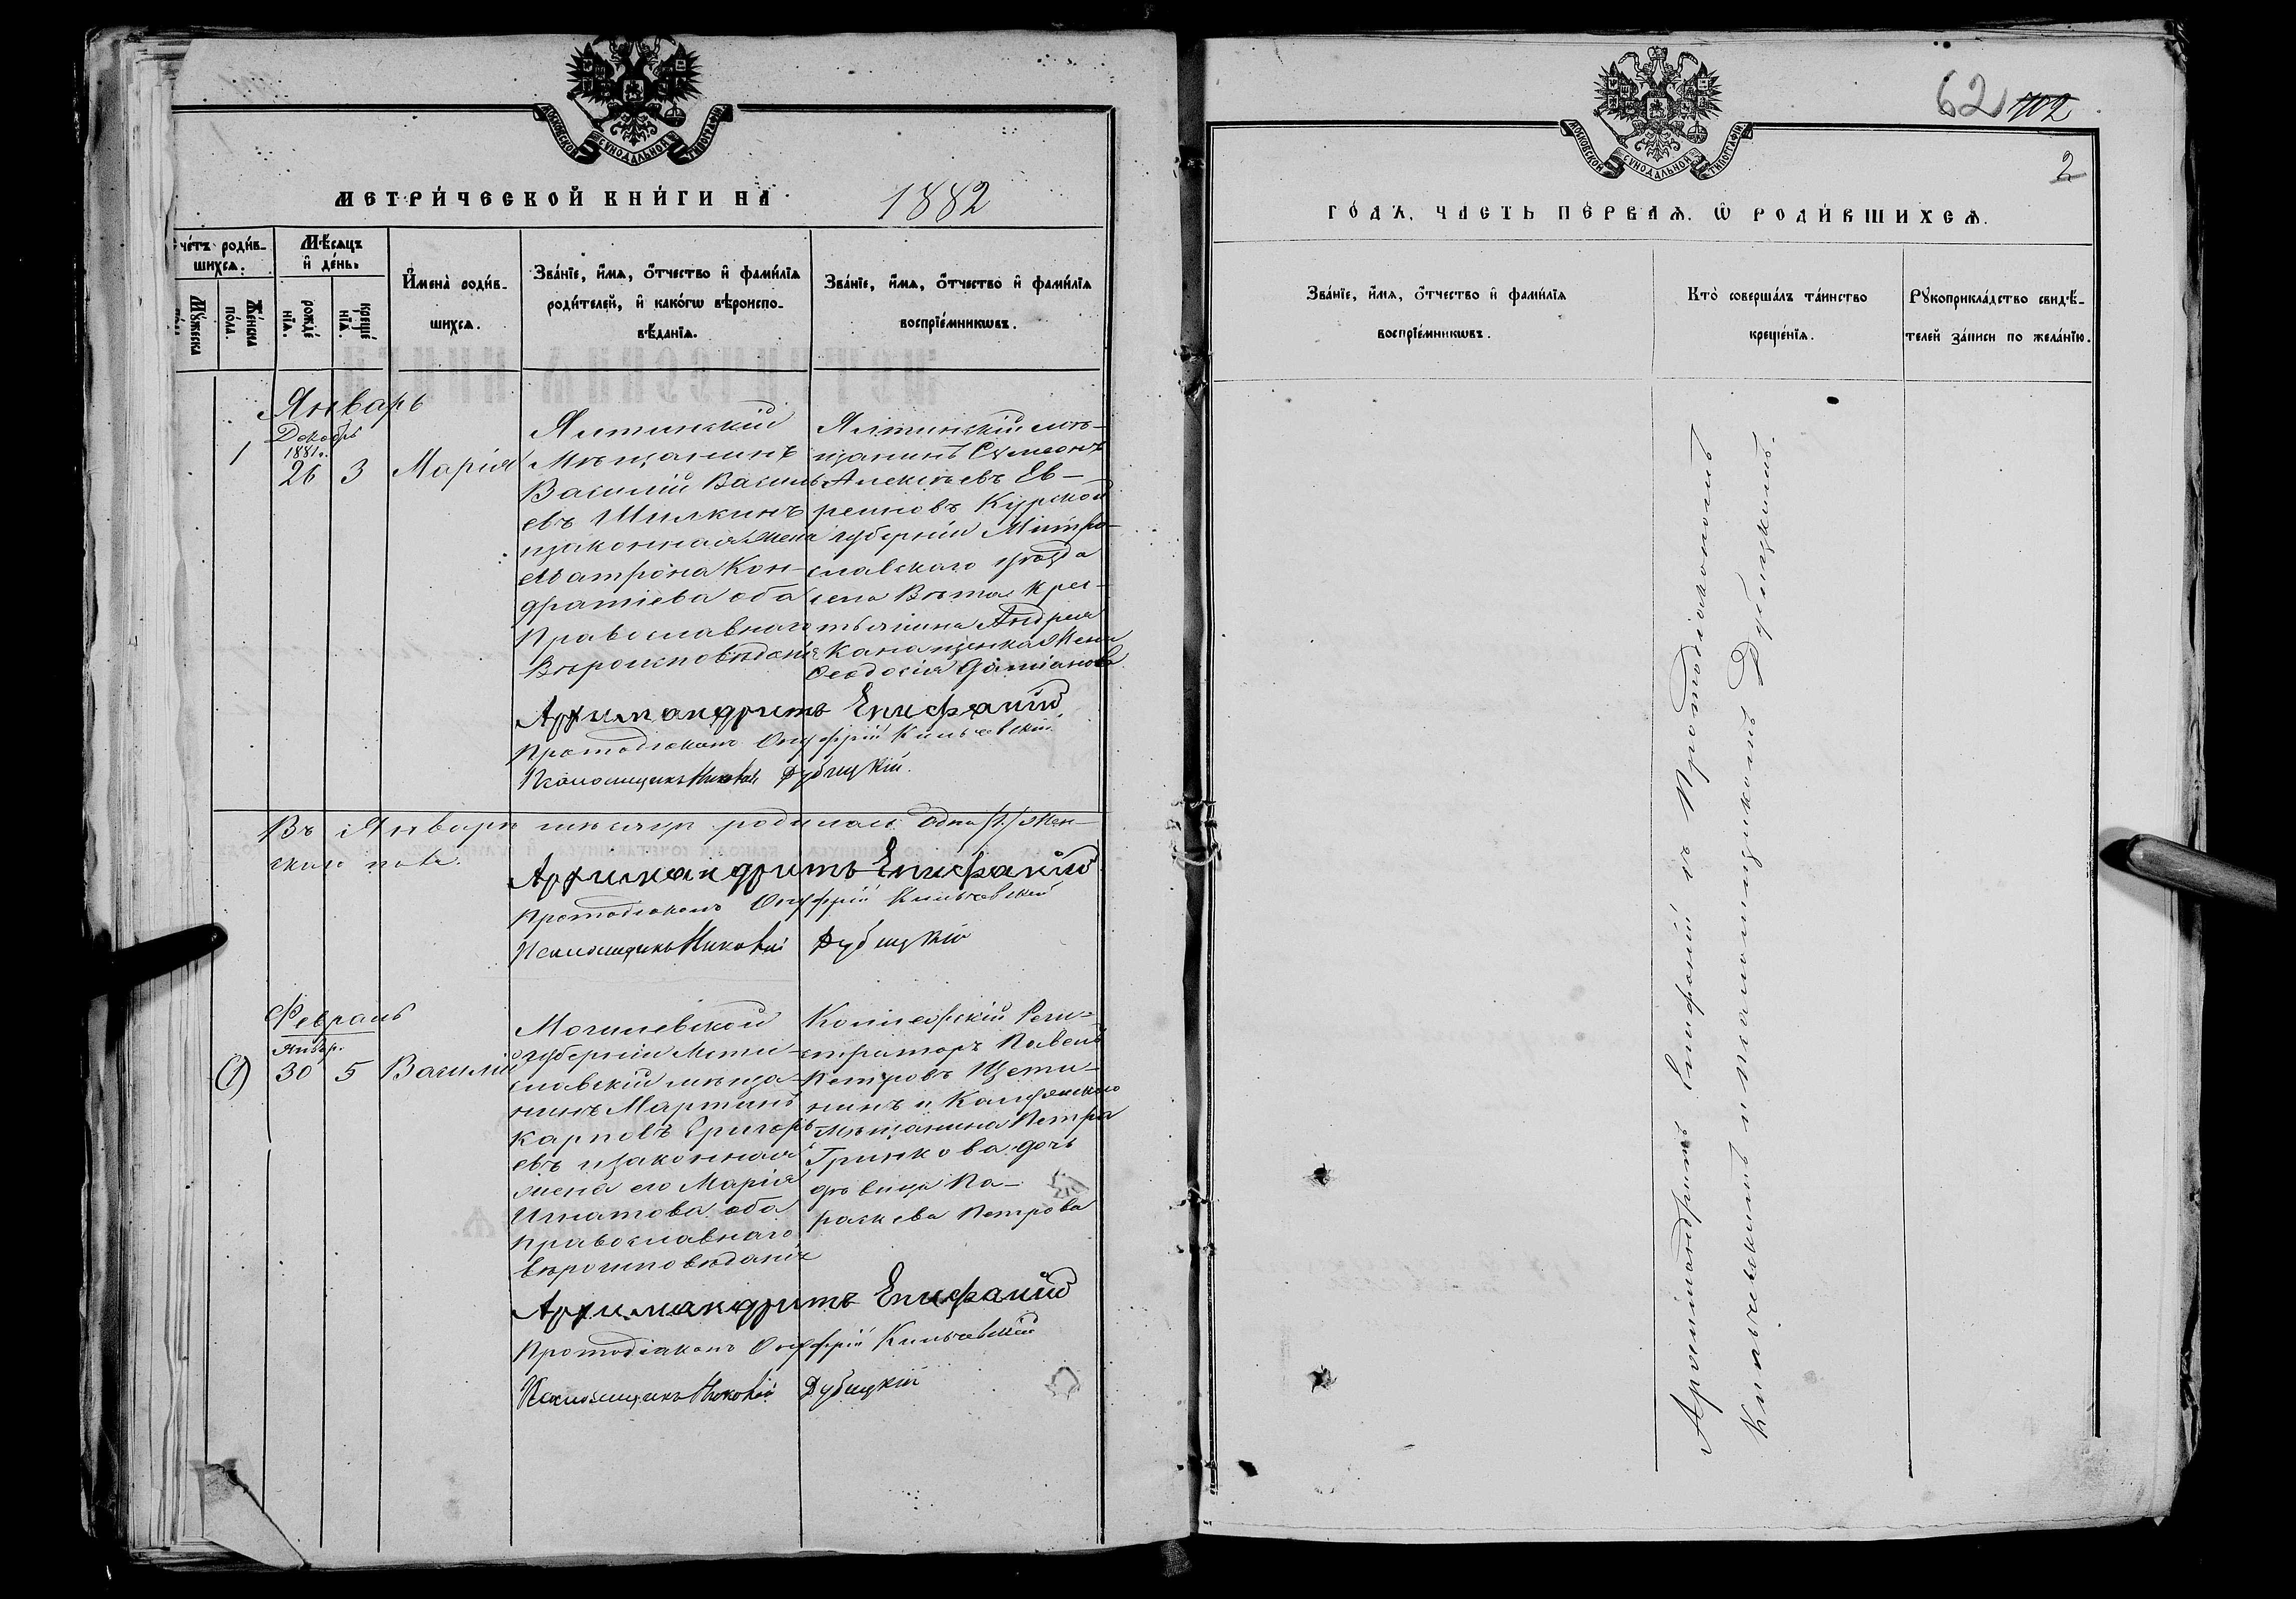 МОСКОВСКОЙ СѴНОДАЛЬНОЙ ТИПОГРАФІИ
МЕТРИ́ЧЕСКОЙ КНИ́ГИ НА 1882
счéтъ роди́в-
шихсѧ.
Мꙋ́жеска
по́ла.
Же́нска
по́ла.
Мѣ́сяцъ
и҆ де́нь.
рожде́
нїѧ.
креще́
нїѧ.
И҆мена̀ роди́в-
шихсѧ.
Зва́нїе, и҆́мѧ, ѻ҆́тчество и҆ фами́лїѧ
роди́телей, и҆ како́гѡ вѣроиспо-
вѣ́данїѧ.
Зва́нїе, и҆́мѧ, ѻ҆́тчество и҆ фами́лїѧ
воспрїе́мникѡвъ.
Январь
Декабрь
1881 г.
1
26
3
Марія
Ялтинскій
Мѣщанинъ
Василій Василь-
евъ Шилкинъ
изаконная жена
Матрона Кон-
дратіева оба
Православнаго
Вѣроисповѣданія
Ялтинскій мѣ-
щанинъ Сѵмеонъ
Алексѣевъ Ев-
реиновъ Курской
губерніи
славскаго уѣзда
села Крес-
тьянина Андрея
жена
Ѳеодосія Даміанова
Архимандритъ Епифаній
Протодіаконъ Онуфрій Кильчевскій
Псаломщикъ Николай Дубицкій.
Въ Январѣ мѣсяцѣ родилась одна /1./ жен-
скаго пола.
Архимандритъ Епифаній
Протодіаконъ Онуфрій Кильчевскій
Псаломщикъ Николай Дубицкій
Февраль
Январ.
(1)
30
5
Василій
Могилевской
губерніи Мсти-
славскій мѣща-
нинъ Мартинъ
Карповъ Григорь-
евъ изаконная
жена его Марія
Игнатова оба
православнаго
вѣроисповѣданія
Коллежскій Реги-
страторъ Павелъ
Петровъ Щети-
нинъ и
Мѣщанина Петра
Гринкова дочь
дѣвица Па-
раскева Петрова
Архимандритъ Епифаній
Протодіаконъ Онуфрій Кильчевскій
Псаломщикъ Николай Дубицкій
МОСКОВСКОЙ СѴНОДАЛЬНОЙ ТИПОГРАФІИ
62 102
2
ГО́ДЪ, ЧАСТЬ ПЕ́РВАѦ. Ѡ҆ РОДИ́ВШИХСѦ.
Зва́нїе, и҆́мѧ, ѻ҆́тчество и҆ фами́лїѧ
воспрїе́мникѡвъ.
Кто̀ соверша́лъ та́инство
креще́нїѧ.
Рꙋкоприкла́дство свидѣ́-
телей за́писи по жела́нїю.
Архимандритъ Епифаній съ Протодіакономъ
Кильчевскимъ и псаломщикомъ Дубицкимъ.